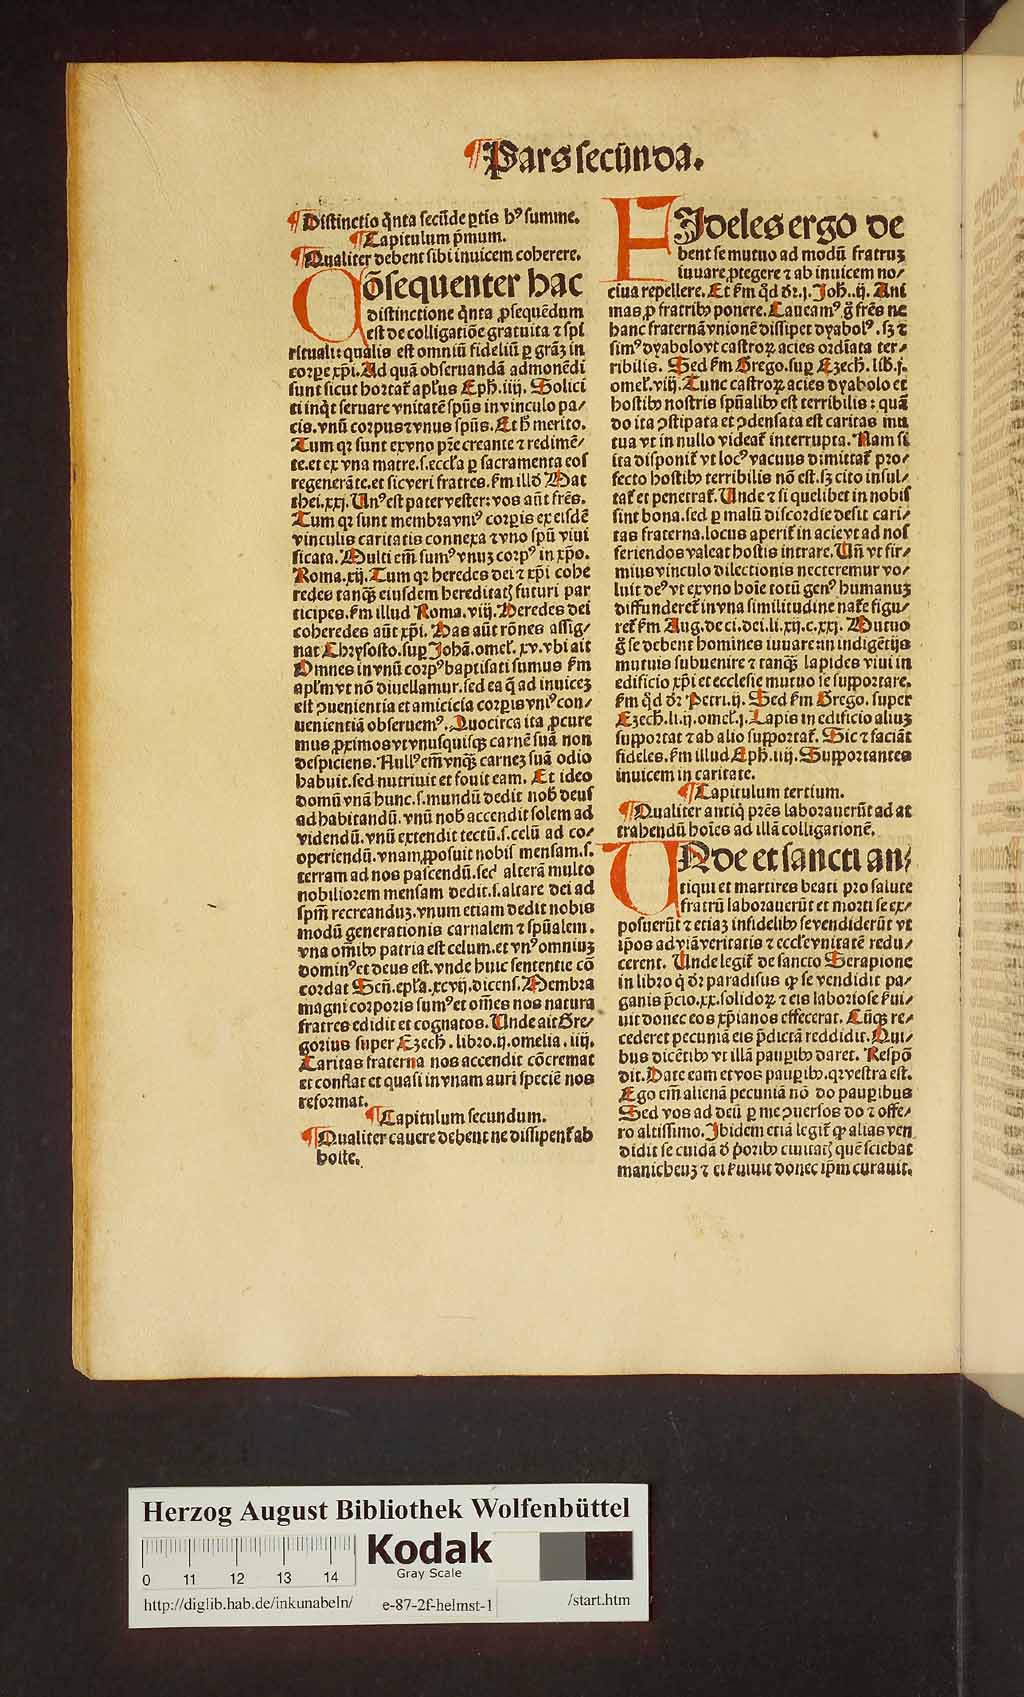 ¶ Pars secūnda.
¶ Distinctio q̄nta secūde ꝑtis hꝰ summe.
¶ Capitulum p̄mum.
¶ Qualiter debent sibi inuicem coherere.
Cōsequenter hac
distinctione q̄nta ꝓsequēdum
est de colligatiōe gratuita ⁊ spi
rituali: qualis est omniū fideliū ꝑ grāȝ in
corꝑe xp̄i. Ad quā obseruandā admonēdi
sunt sicut hortat᷑ apl̄us Eph̄. iiij. Solici
ti inq̄t seruare vnitatē sp̄us in vinculo pa⸗
cis. vnū corpus ⁊ vnus sp̄us. Et h̄ merito.
Tum qꝛ sunt ex vno pr̄e creante ⁊ redimē⸗
te. et ex vna matre .s. eccl̄a ꝑ sacramenta eos
regenerāte. et sic veri fratres. k̄m illd̄ Mat
thei. xxj. Unꝰ est pater vester: vos aūt frēs.
Tum qꝛ sunt membra vniꝰ corꝑis ex eisdē
vinculis caritatis connexa ⁊ vno sp̄u viui
ficata. Multi em̄ sumꝰ vnuȝ corpꝰ in xp̄o.
Roma. xij. Tum qꝛ heredes dei ⁊ xp̄i cohe
redes tanqꝫ eiusdem hereditatꝭ futuri par
ticipes. k̄m illud Roma. viij. Heredes dei
coheredes aūt xp̄i. Has aūt rōnes assig⸗
nat Chrysosto. suꝑ Johā. omel̄. xv. vbi ait
Omnes in vnū corpꝰ baptisati sumus k̄m
apl̄m vt nō diuellamur. sed ea q̄ ad inuiceȝ
est ꝯuenientia et amicicia corꝑis vniꝰ con⸗
uenientiā obseruemꝰ. Quocirca ita ꝓcure
mus ꝓximos vt vnusquisqꝫ carnē suā non
despiciens. Nullꝰ em̄ vnqꝫ carneȝ suā odio
habuit. sed nutriuit et fouit eam. Et ideo
domū vnā hunc .s. mundū dedit nob̄ deus
ad habitandū. vnū nob̄ accendit solem ad
videndū. vnū extendit tectū .s. celū ad co⸗
operiendū. vnam ꝓposuit nobis mensam .s.
terram ad nos pascendū. sed alterā multo
nobiliorem mensam dedit .s. altare dei ad
sp̄m recreanduȝ. vnum etiam dedit nobis
modū generationis carnalem ⁊ sp̄ualem.
vna om̄ibꝰ patria est celum. et vnꝰ omniuȝ
dominꝰ et deus est. vnde huic sententie cō
cordat Sen̄. epl̄a. xcvij. dicens. Membra
magni corporis sumꝰ et om̄es nos natura
fratres edidit et cognatos. Unde ait Gre⸗
gorius super Ezech̄. libro. ij. omelia. iiij.
Caritas fraterna nos accendit cōcremat
et conflat et quasi in vnam auri speciē nos
reformat.
¶ Capitulum secundum.
¶ Qualiter cauere debent ne dissipent᷑ ab
hoste.
FIdeles ergo de
bent se mutuo ad modū fratruȝ
iuuare ꝓtegere ⁊ ab inuicem no⸗
ciua repellere. Et k̄m qd̄ dr̄. j. Joh̄. iij. Ani
mas ꝓ fratribꝰ ponere. Caueamꝰ g̊ frēs ne
hanc fraternā vnionē dissipet dyabolꝰ. sȝ ⁊
simꝰ dyabolo vt castroꝝ acies ordīata ter⸗
ribilis. Sed k̄m Grego. suꝑ Ezech̄. lib̄. j.
omel̄. viij. Tunc castroꝝ acies dyabolo et
hostibꝰ nostris sp̄ualibꝰ est terribilis: quā
do ita ꝯstipata et ꝯdensata est caritas mu
tua vt in nullo videat᷑ interrupta. Nam si
ita disponit᷑ vt locꝰ vacuus dimittat᷑ pro⸗
fecto hostibꝰ terribilis nō est. sȝ cito insul⸗
tat᷑ et penetrat᷑. Unde ⁊ si quelibet in nobis
sint bona. sed ꝑ malū discordie desit cari⸗
tas fraterna. locus aperit᷑ in acie vt ad nos
feriendos valeat hostis intrare. Un̄ vt fir⸗
mius vinculo dilectionis necteremur vo⸗
luit deꝰ vt ex vno hoīe totū genꝰ humanuȝ
diffunderet᷑ in vna similitudine nat᷑e figu⸗
ret᷑ k̄m Aug. de ci. dei. li. xij. c. xxj. Mutuo
g̊ se debent homines iuuare an indigētijs
mutuis subuenire ⁊ tanqꝫ lapides viui in
edificio xp̄i et ecclesie mutuo se supportare.
k̄m qd̄ dr̄ Petri. ij. Sed k̄m Grego. super
Ezech̄. li. ij. omel̄. j. Lapis in edificio aliuȝ
supportat ⁊ ab alio supportat᷑. Sic ⁊ faciāt
fideles. k̄m illud Eph̄. iiij. Supportantes
inuicem in caritate.
¶ Capitulum tertium.
¶ Qualiter antiq̄ pr̄es laborauerūt ad at
trahendū hoīes ad illā colligationē.
UNde et sancti an⸗
tiqui et martires beati pro salute
fratrū laborauerūt et morti se ex⸗
posuerūt ⁊ etiaȝ infidelibꝰ se vendiderūt vt
ip̄os ad viā veritatis ⁊ eccl̄e vnitatē redu⸗
cerent. Unde legit᷑ de sancto Serapione
in libro q̄ dr̄ paradisus ꝙ se vendidit pa⸗
ganis p̄cio. xx. solidoꝝ ⁊ eis laboriose s̄ui⸗
uit donec eos xp̄ianos effecerat. Cūqꝫ re⸗
cederet pecuniā eis p̄dictā reddidit. Qui⸗
bus dicētibꝰ vt illā pauꝑibꝰ daret. Respō
dit. Date eam et vos pauꝑibꝰ. qꝛ vestra est.
Ego em̄ alienā pecuniā nō do pauꝑibus
Sed vos ad deū ꝑ me ꝯuersos do ⁊ offe⸗
ro altissimo. Ibidem etiā legit᷑ ꝙ alias ven
didit se cuidā d̄ p̄oribꝰ ciuitatꝭ quē sciebat
manicheuȝ ⁊ ei s̄uiuit donec ip̄m curauit.
Herzog August Bibliothek Wolfenbüttel
Kodak
Gray Scale
0 11 12 13 14
http://diglib.hab.de/inkunabeln/ e-87-2f-helmst-1 /start.htm